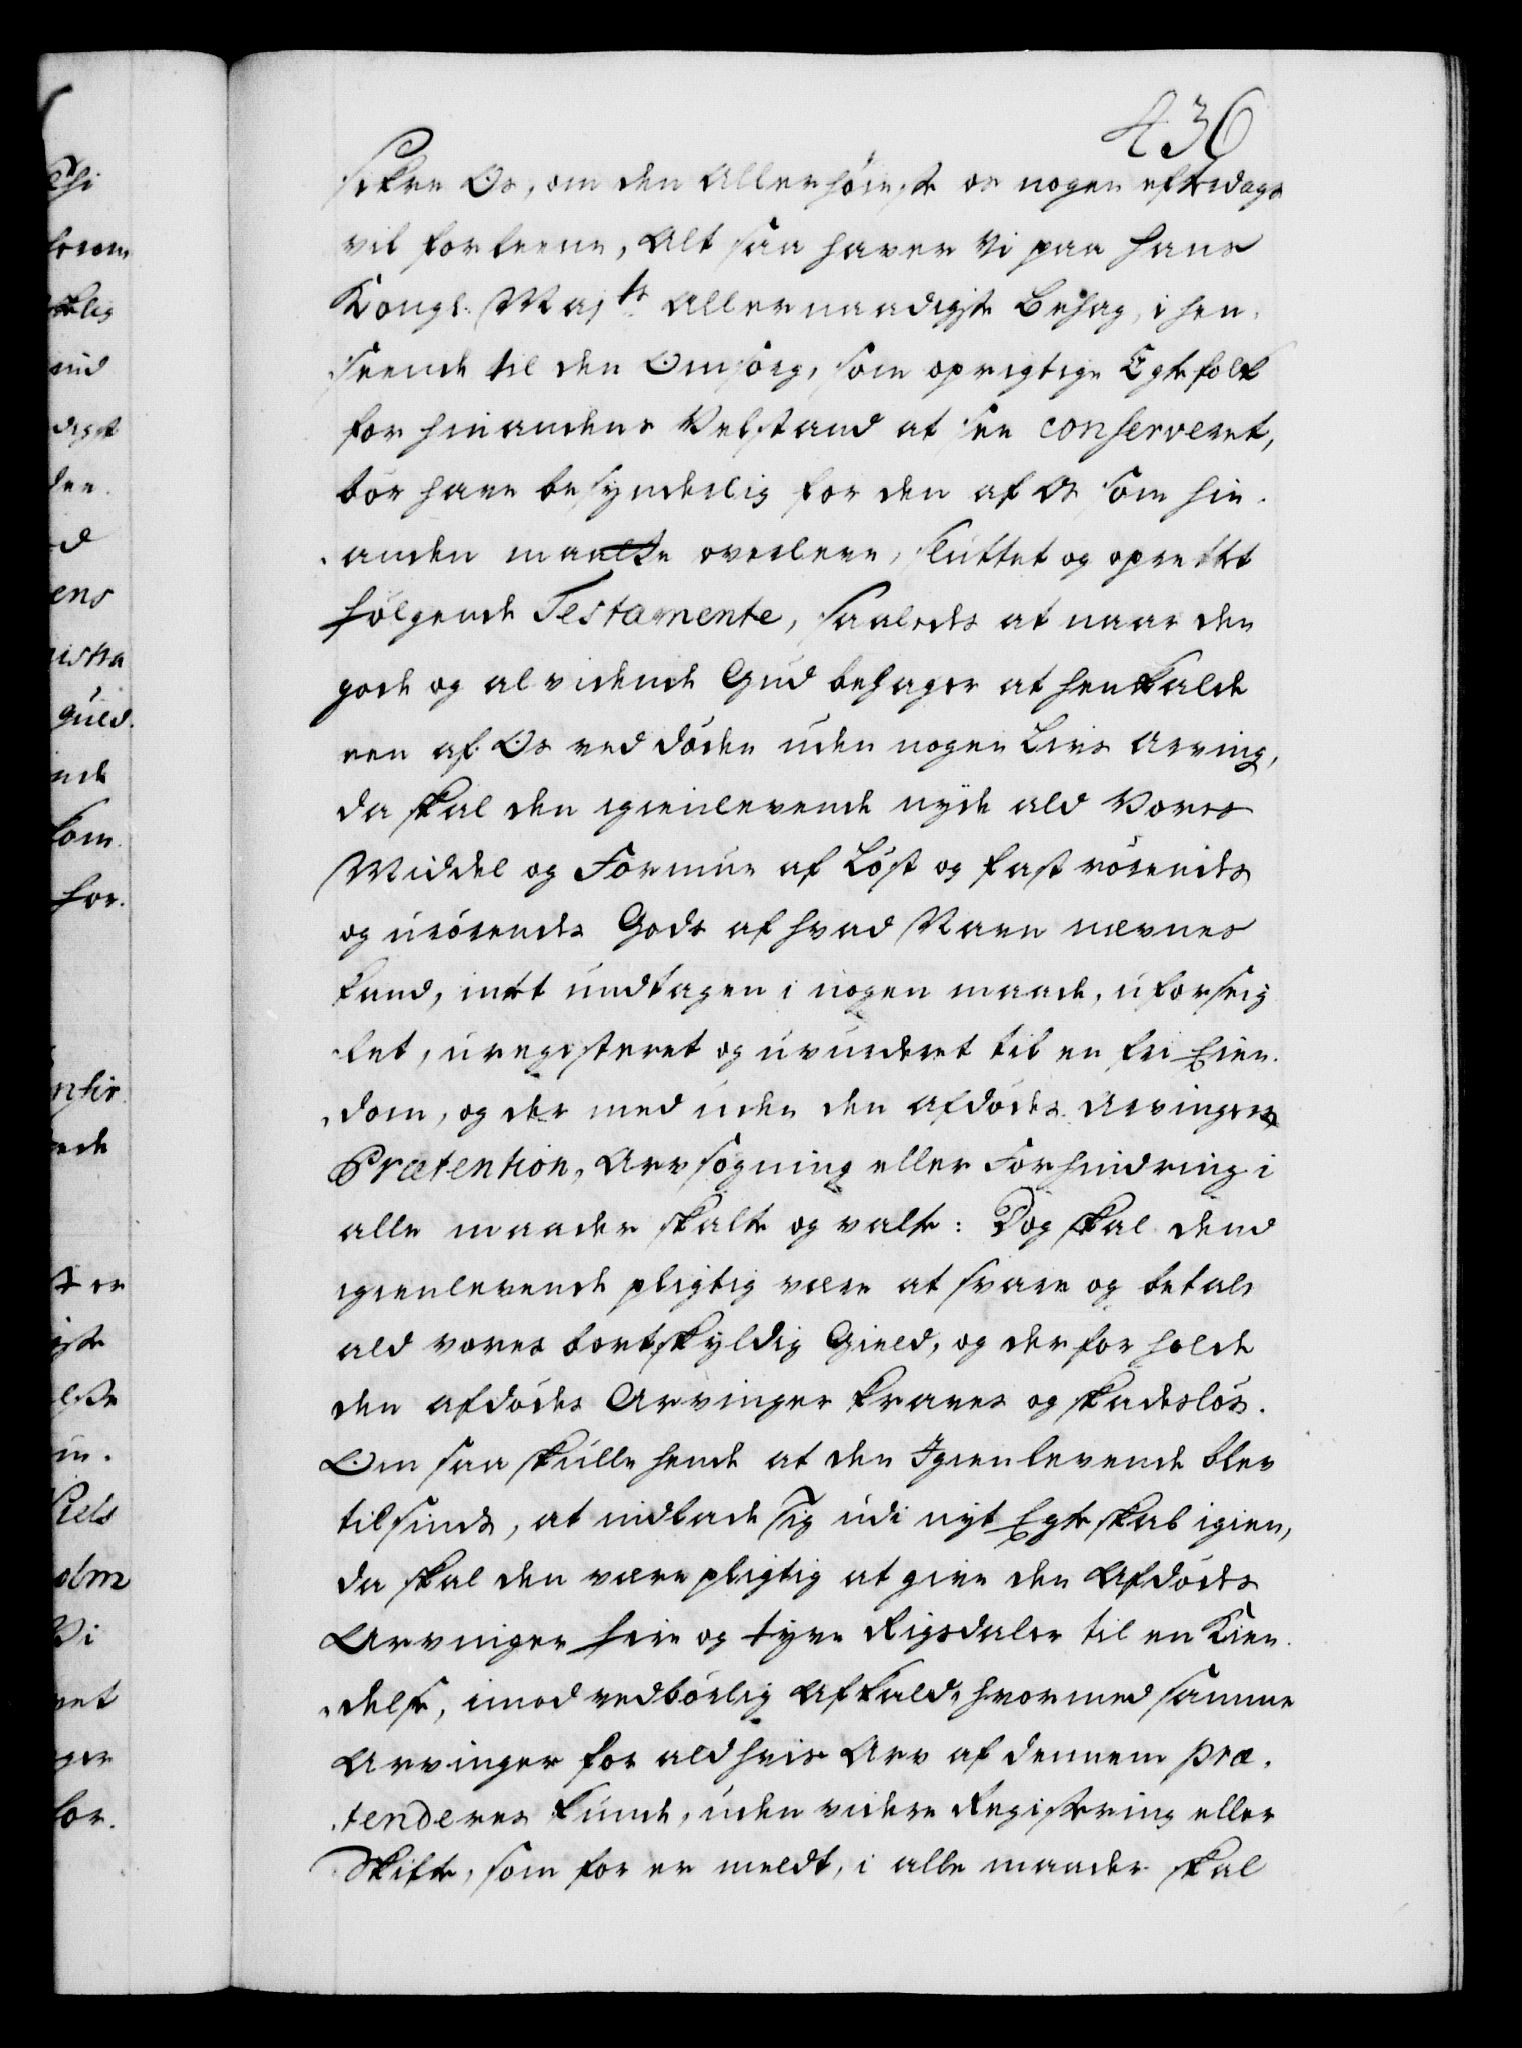 436
sikre Os, om den Allerhöieste os nogen eftterdags
vil forleene, Alt saa haver Vi paa Hans
Kongl. Majts Allernaadigste Behag, i hen-
seende til den Omsorg, som oprigtige Egtefolk
for hinandens Velstand at see conserveret,
bör have besynderlig for den af Os som hin-
anden maatte overleve, sluttet og oprettet
fölgende Testamente, saaledes at naar den
gode og alvidende Gud behager at henkalde
een af Os ved döden uden nogen Livs Arving,
da skal den igienlevende nyde ald Vores
Middel og Formue af Löst og fast rörendes
og urörendes Gods af hvad Navn nævnes
kand, intet undtagen i nogen maade, uforseig
let, uregisteret og uvurderet til en fri Eien-
dom, og der med uden den afdödes Arvingers
Prætention, Arvsögning eller Forhindring i
alle maader skalte og valte: Dog skal dend
igienlevende pligtig være at svare og betale
ald vores bortskyldig Gield, og derfor holde
den afdödes Arvinger kraves og skadeslös.
Om saa skulle hende at den Igienlevende blev
tilsinds, at indlade sig udi nyt Egteskab igien,
da skal den være pligtig at give den Afdödes
Arvinger fire og tyve Rigsdaler til en Kien-
delse, imod vedbörlig Afkald, hvormed samme
Arvinger for ald hvis Arv af dennem præ-
tenderes kunde, uden videre Registering eller
Skifte, som for er meldt, i alle maader skal